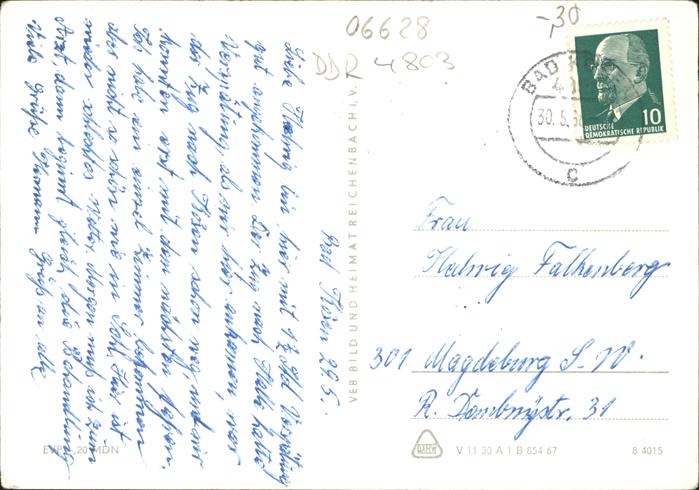 06628
DDR 4803
-,30
BAD KÖ
30.5.
c
DEUTSCHE
DEMOKRATISCHE REPUBLIK
10
Bad Kösen 29.5.
Liebe Hedwig bin hier mit 1½ Std Verspätung
gut angekommen Der Zug nach Halle hatte
Verspätung, als wir hier ankamen, war
der Zug nach Kösen schon weg, und wir
konnten erst mit den nächsten fahren.
Ich habe ein zimmer bekommen
das nicht so schön wie in Hier ist
wieder schlechtes Wetter. Morgen muß ich zum
Arzt, dann beginnt gleich die Behandlung
Viele Grüße Grüße an alle
VEB BILD UND HEIMAT REICHENBACH I. V.
Frau
Hedwig Falkenberg
301 Magdeburg S-W.
R. 31
EVP -,20 MDN
V 11 50 A 1 B 654 67
8 4015